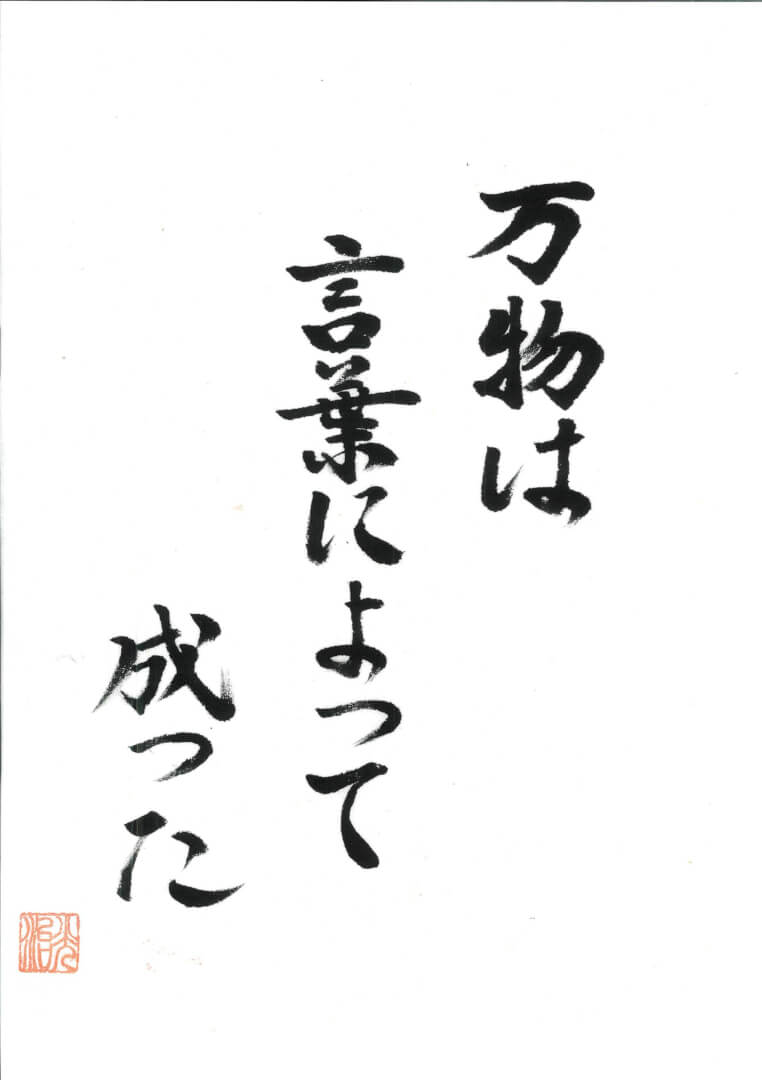 万物は
言葉によって
成った